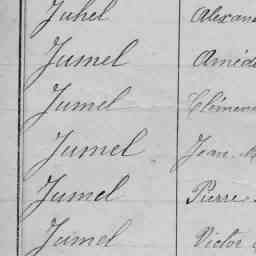 Juhel Alexan
Jumel Amédé
Jumel Clémen
Jumel Jean
Jumel Pierre
Jumel Victor